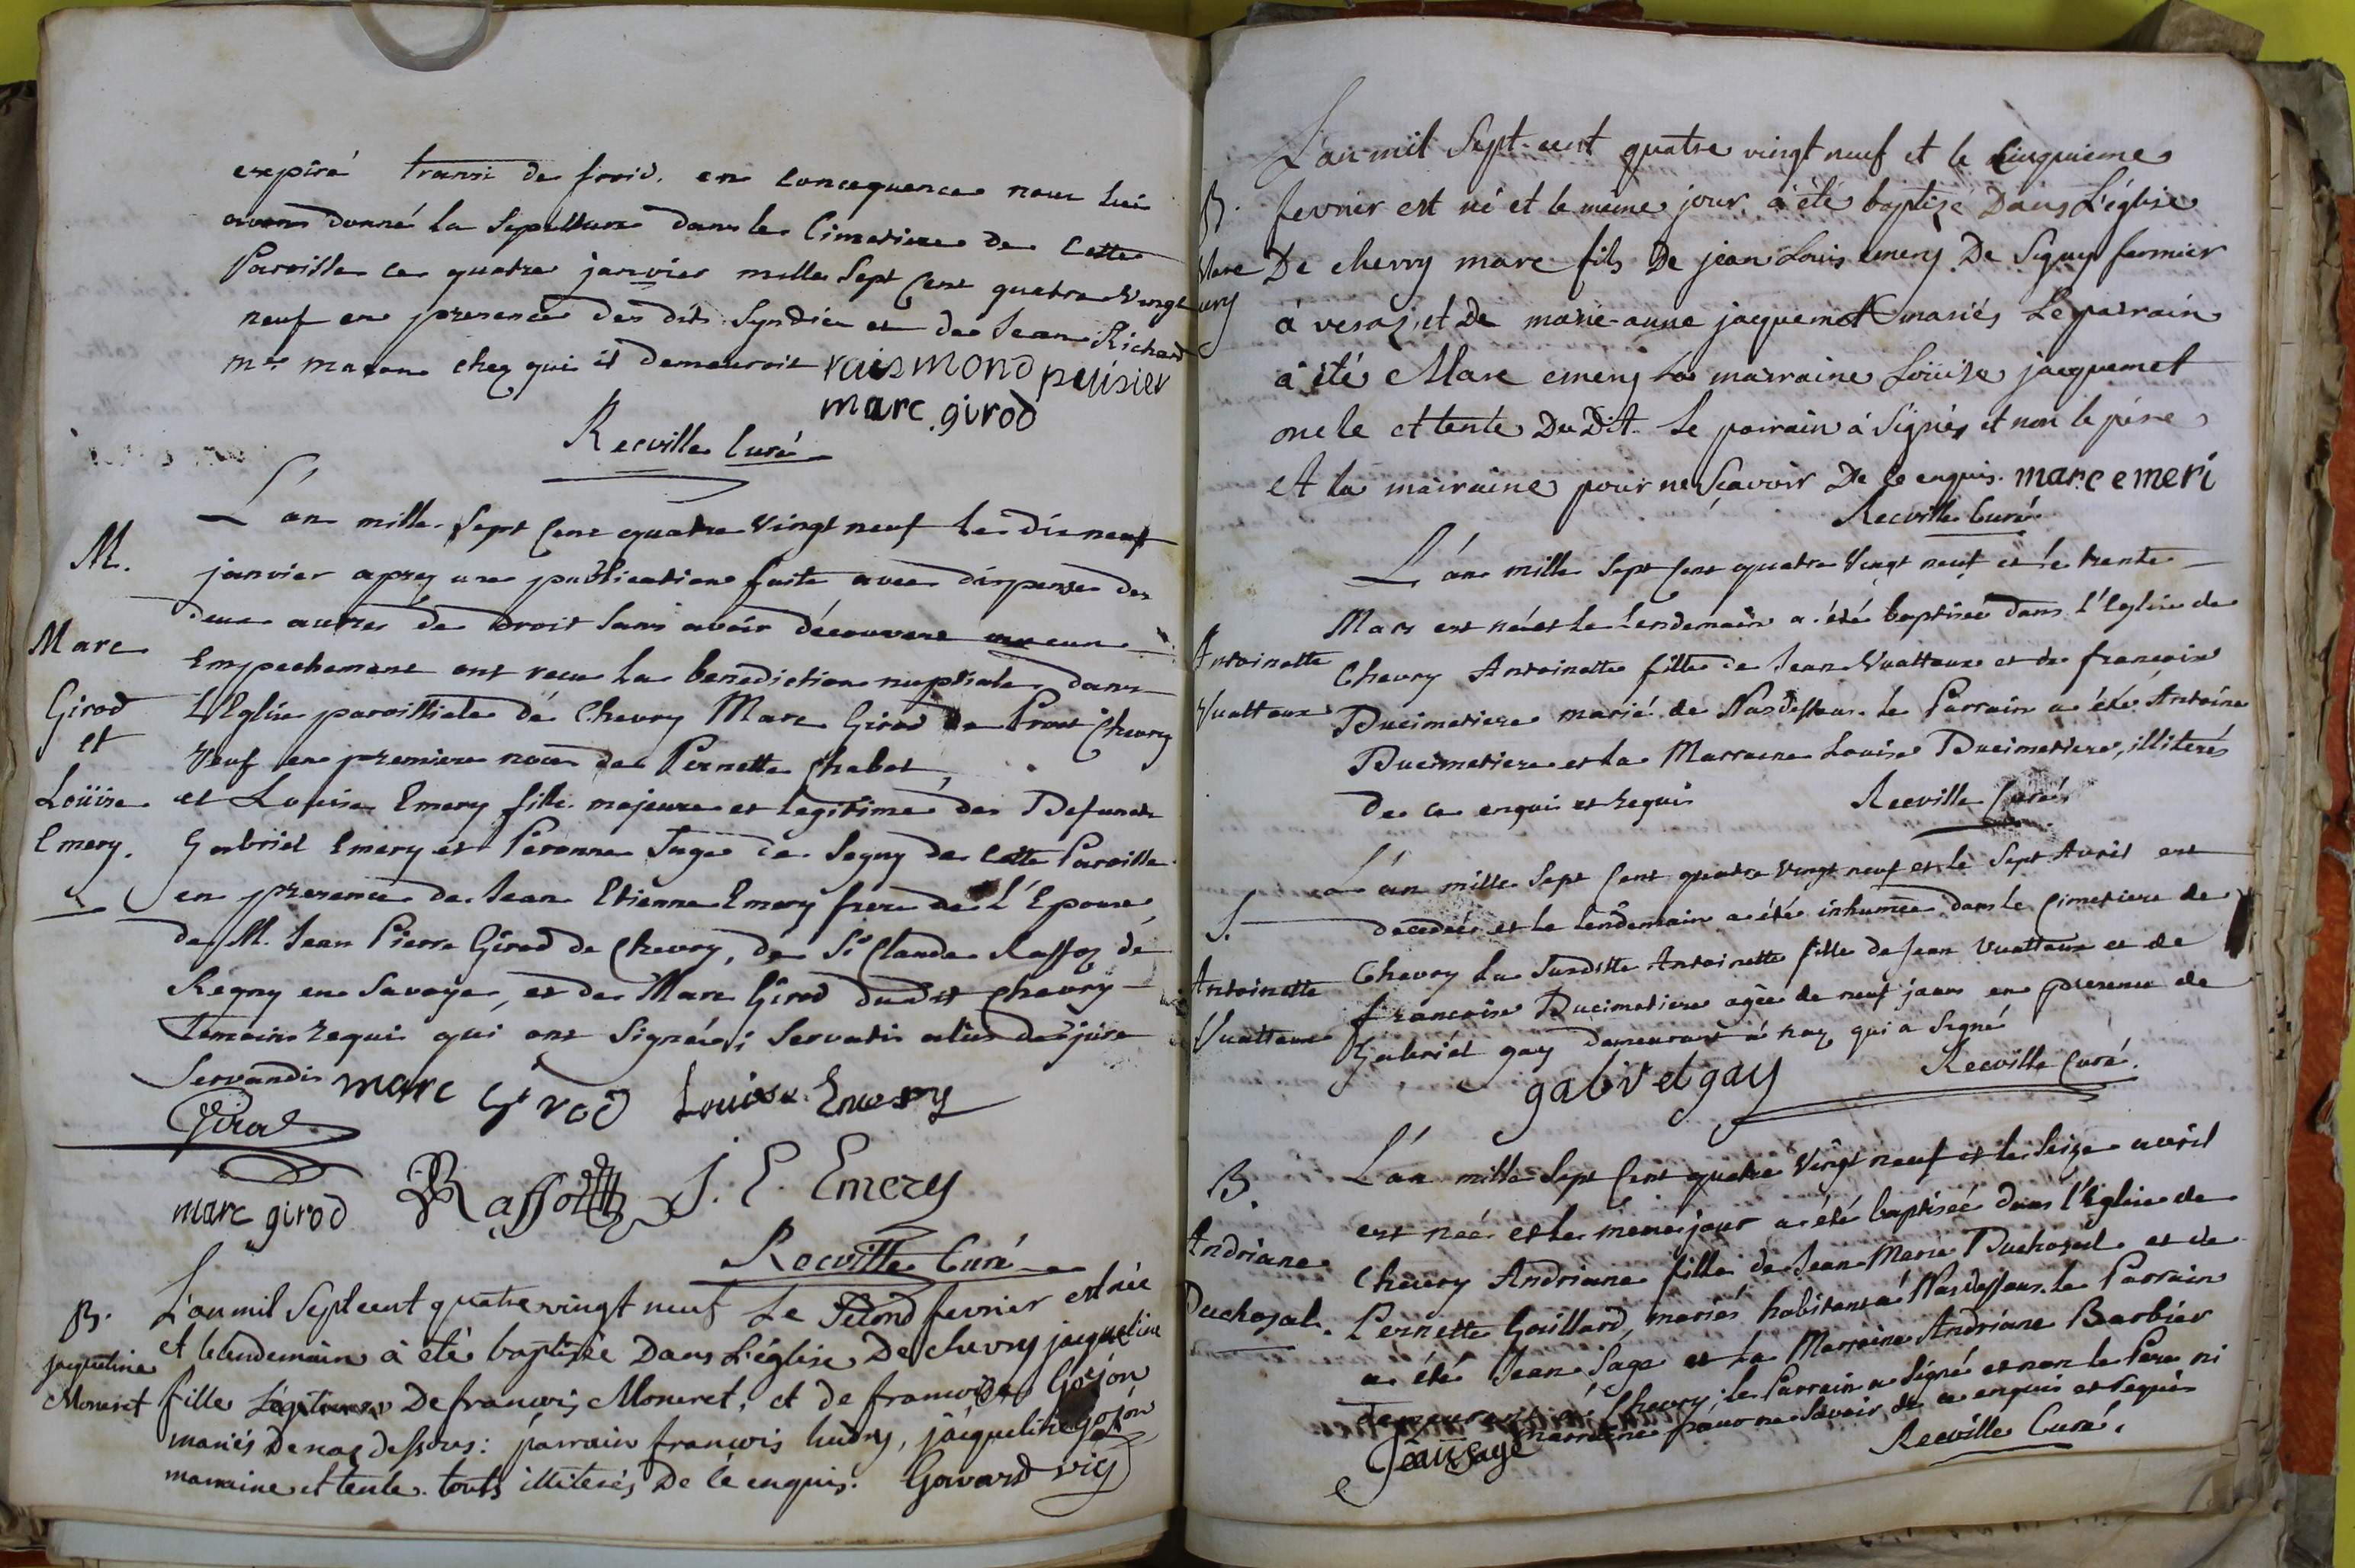 expiré transi de froid. en concequence nous lui
avons donné la Sepulture dans le Cimetiere de Cette
Paroisse ce quatre janvier mille Sept Cent quatre Vingt
neuf en presence des dits Syndics et de Jean Richard
mtre maçon chez qui il demeuroit raismond puisier
marc girod
Recville Curé
M.
Marc
Girod
et
Loüise
Emery.
L'an mille Sept Cent quatre Vingt neuf le dix neuf
janvier aprez une publication faite avec dispense des
deux autres de Droit Sans avoir découvert aucun
Empechement ont recu la benediction nuptiale dans
L'Eglise paroissiale de Chevry Marc Girod de Chevry
Veuf en premiere noce de Pernette Chabot,
et Louise Emery fille majeure et legitime des Defunts
Gabriel Emery et Peronne Juge de Segny de Cette Paroisse
en presence de Jean Etienne Emery frere de L'Epouse,
de M. Jean Pierre Girod de Chevry, de Sr Claude Raffoz de
Regny en Savoye, et de Marc Girod dudit Chevry
temoins requis qui ont Signés; Servatis aliis de jure
Servandis marc Girod Louise Emery
Girod
marc girod Raffoz J. E. Emery
Recville Curé
B.
jaqueline
Moneret
L'an mil Sept cent quatre vingt neuf Le Second fevrier est née
et le lendemain à été baptisée Dans L'église De chevry jaqueline
fille Légitime De francois Moneret, et de francoise Gojon
mariés De naz dessous: parrain francois hudry, jacqueline Gojon
marraine et tente. touts illiterés De ce enquis. Govard vic
B.
Marc
L'an mil Sept-cent quatre vingt neuf et le Cinquieme
fevrier est né et le même jour à été baptisé Dans L'église
De chevry marc fils De jean Louis emery De Segny fermier
à veraz, et De marie-anne jaquemet mariés Le parrain
à été Marc emery La marraine Louise jacquemet
oncle et tente DuDit. Le parrain à Signés et non le père
et la mairaine pour ne Sçavoir De ce enquis. marc emeri
Recville Curé
Antoinette
Vuattoux
L'an mille Sept Cent quatre Vingt neuf et le trente
Mars est née et le lendemain a été baptisée dans l'Eglise de
Chevry Antoinette fille de Jean Vuattoux et de francoise
Ducimetiere marié de Nazdessous. le Parrain a été Antoine
Ducimetiere et la Marraine Louise Ducimetiere, illiterés
de ce enquis et Requis Recville Curé
S.
Antoinette
Vuattoux
L'an mille Sept Cent quatre Vingt neuf et le Sept Avril est
decedée et le lendemain a été inhumée dans le Cimetiere de
Chevry la Susditte Antoinette fille de Jean Vuattoux et de
francoise Ducimetiere agée de neuf jours en presence de
Gabriel gay demeurant à naz qui a Signé
gabriel gay Recville Curé.
B.
Andriane
Duchosal.
L'an mille Sept Cent quatre Vingt neuf et le Seize avril
est née et le meme jour a été baptisée dans l'Eglise de
Chevry Andriane fille de Jean Marie Duchosal et de
Pernette Gaillard, mariés habitant à Nazdessous. le Parrain
a été Jean Sage et la Marraine Andriane Barbier
demeurants à Chevry; le Parrain a Signé et non le Pere ni
marraine pour ne Savoir de ce enquis et Requis
Jean Sage Recville Curé.